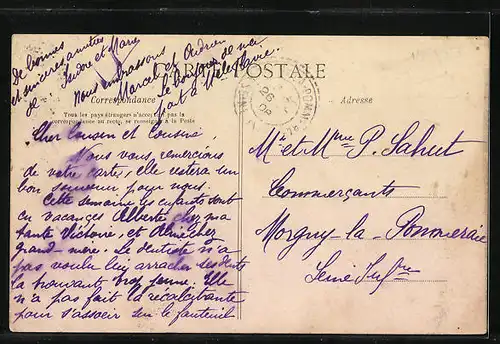 De bonnes
et sincères amitiés
de Marie
Nous embrassons
Marcel et Adrien
Le bonjour de ma
part à Melle Marie.
POSTALE
Correspondance
Tous les pays étrangers n'acceptent pas la
correspondance au recto, se renseigner à la Poste
Adresse
Cher Cousin et Cousine
Nous vous remercions
de votre carte, elle restera un
bon souvenir pour nous.
Cette semaine les enfants sont
en vacances Alberte chez ma
tante Victoire, et chez
grand-mère. Le dentiste n'a
pas voulu lui arracher ses dents
la trouvant trop jeune. Elle
n'a pas fait la récalcitrante
pour s'asseoir sur le fauteuil
M et Mme P. Sahut
Commerçants
Morgny-la-Pommeraie
Seine Infre